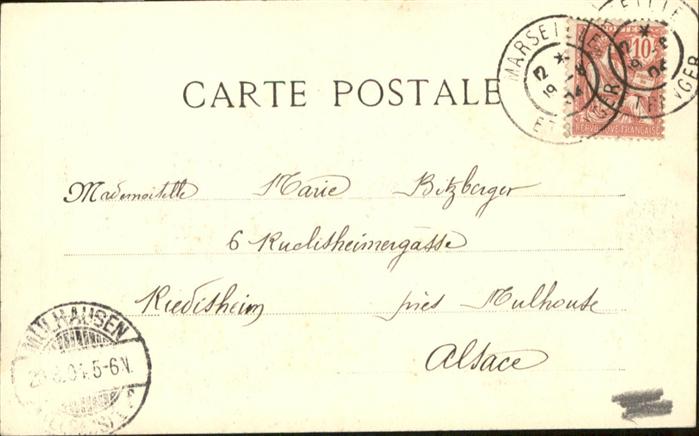 CARTE POSTALE
MARSEILLE
ETRANGER
10
RÉPUBLIQUE FRANÇAISE
Mademoiselle Marie Bitzberger
6 Ruelisheimergasse
Riedisheim près Mulhouse
Alsace
MÜLHAUSEN
04.5-6N.